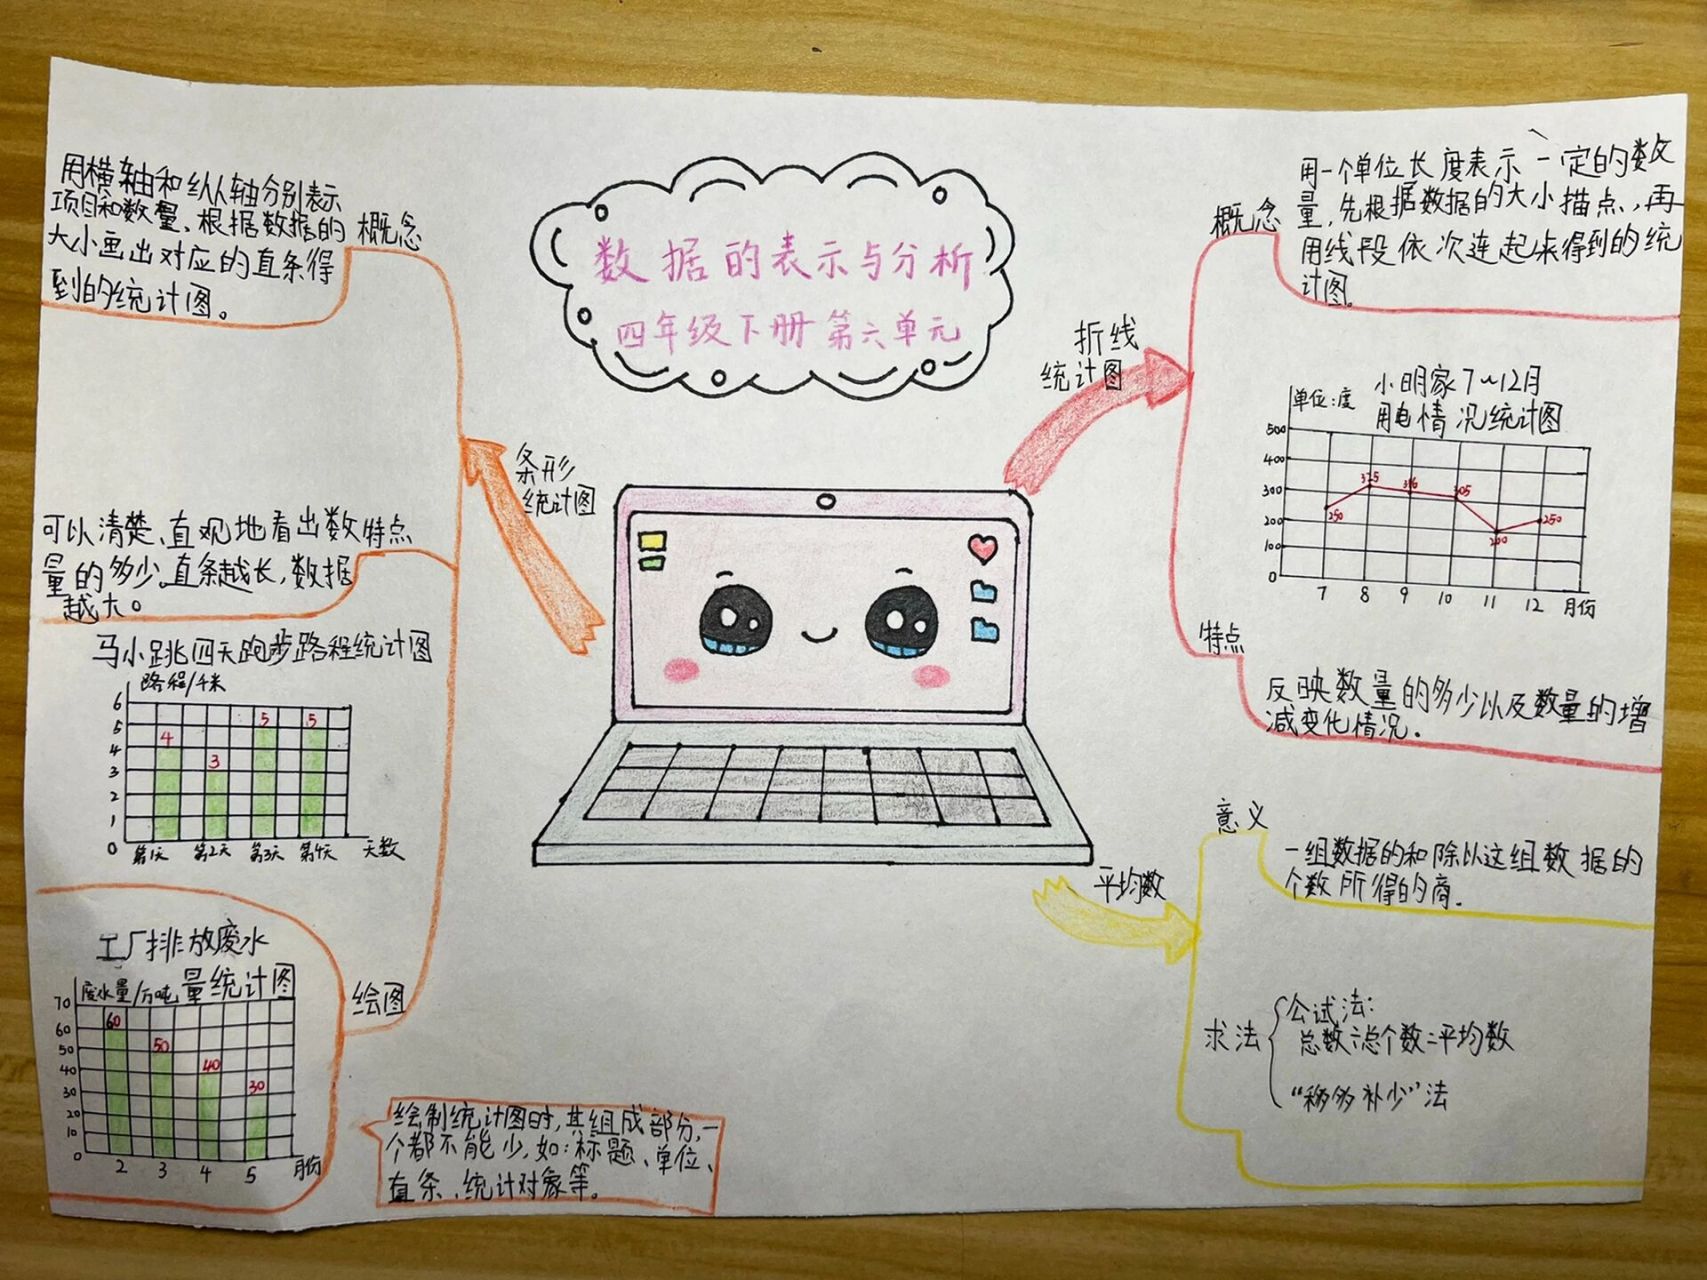 数据的表示与分析
四年级下册第六单元
条形
统计图
概念
用横轴和纵轴分别表示
项目和数量、根据数据的
大小画出对应的直条得
到的统计图。
特点
可以清楚、直观地看出数
量的多少。直条越长，数据
越大。
马小跳四天跑步路程统计图
路程/千米
6
5
4
3
2
1
0
4
3
5
5
第1天 第2天 第3天 第4天 天数
绘图
工厂排放废水
量统计图
废水量/万吨
70
60
50
40
30
20
10
0
60
50
40
30
2 3 4 5 月份
绘制统计图时，其组成部分，一
个都不能少，如：标题、单位、
直条、统计对象等。
折线
统计图
概念
用一个单位长度表示一定的数
量，先根据数据的大小描点，再
用线段依次连起来得到的统
计图。
小明家7~12月
用电情况统计图
单位：度
500
400
300
200
100
0
250
325
316
305
200
250
7 8 9 10 11 12 月份
特点
反映数量的多少以及数量的增
减变化情况。
平均数
意义
一组数据的和除以这组数据的
个数所得的商.
求法
公试法：
总数÷总个数=平均数
“移多补少”法